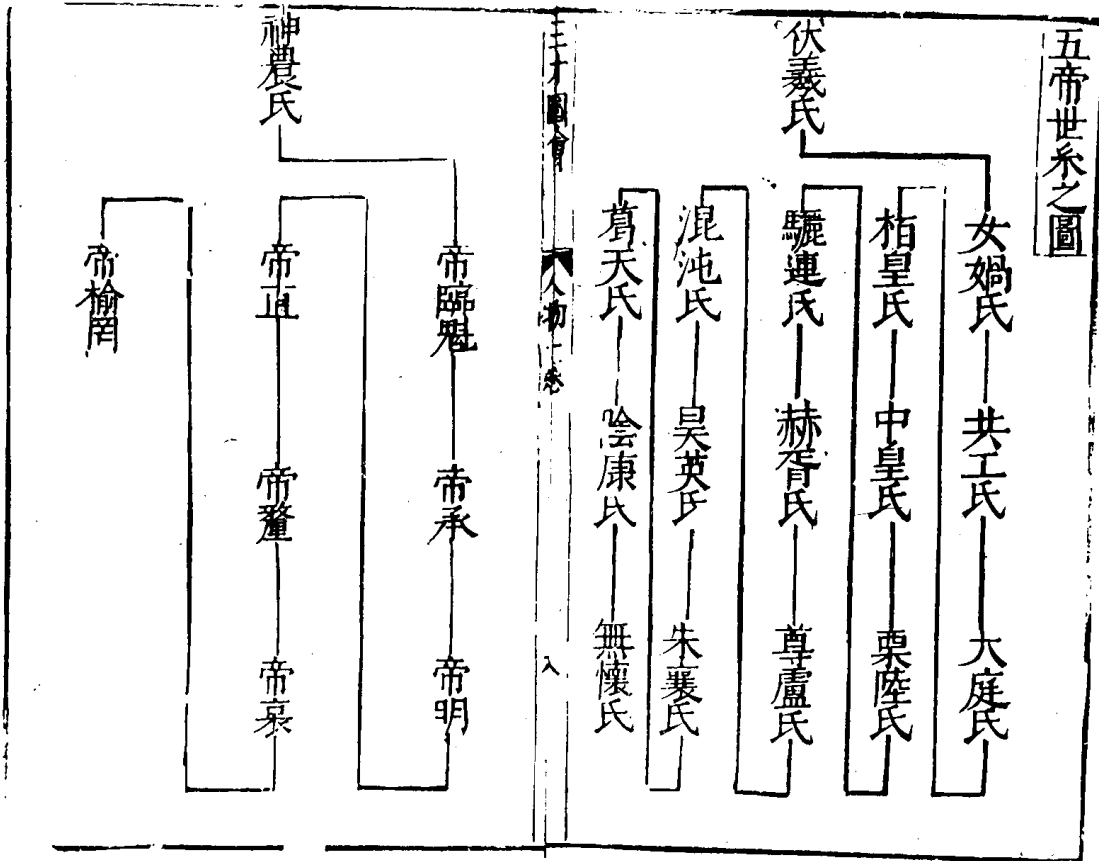 五帝世系之圖
伏羲氏
女媧氏
共工氏
大庭氏
栢皇氏
中皇氏
栗陸氏
驪連氏
赫胥氏
尊盧氏
混沌氏
昊英氏
朱襄氏
葛天氏
陰康氏
無懷氏
三才圖會
人物一卷
八
神農氏
帝臨魁
帝承
帝明
帝直
帝釐
帝哀
帝榆罔